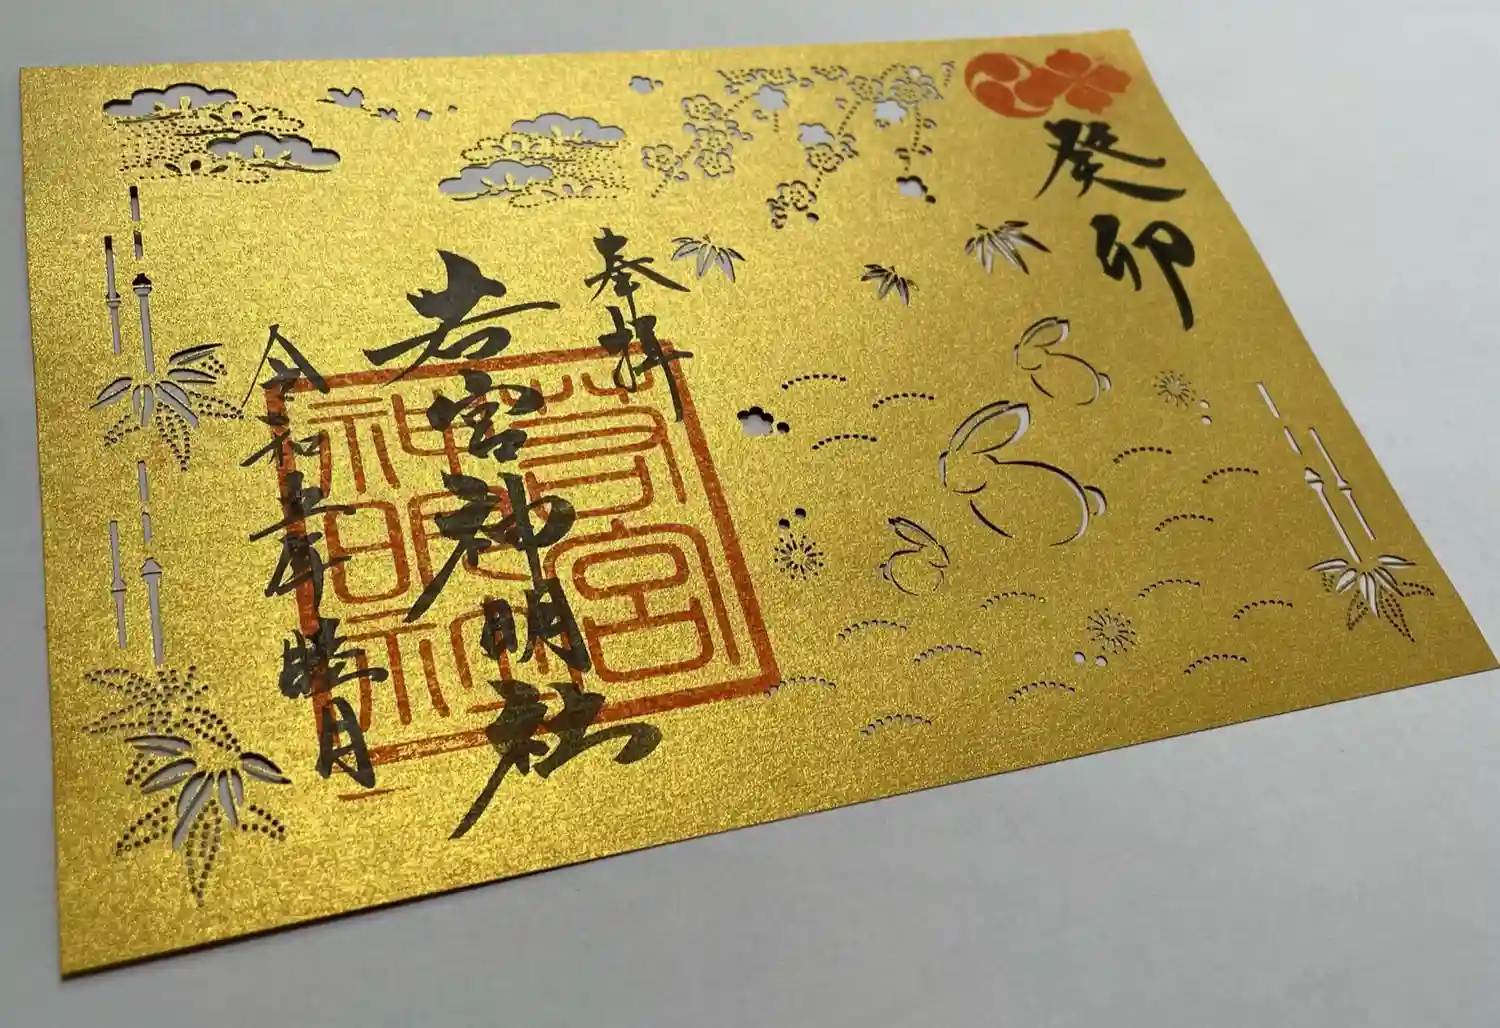 癸卯
奉拝
若宮神明社
令和五年睦月
若宮
神明社